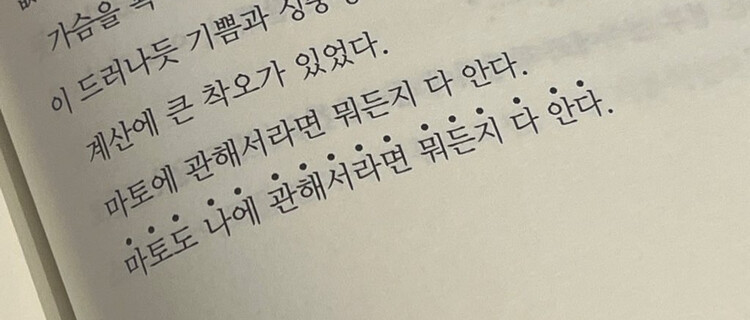 가슴을
이 드러나듯 기쁨과
계산에 큰 착오가 있었다.
마토에 관해서라면 뭐든지 다 안다.
마토도 나에 관해서라면 뭐든지 다 안다.